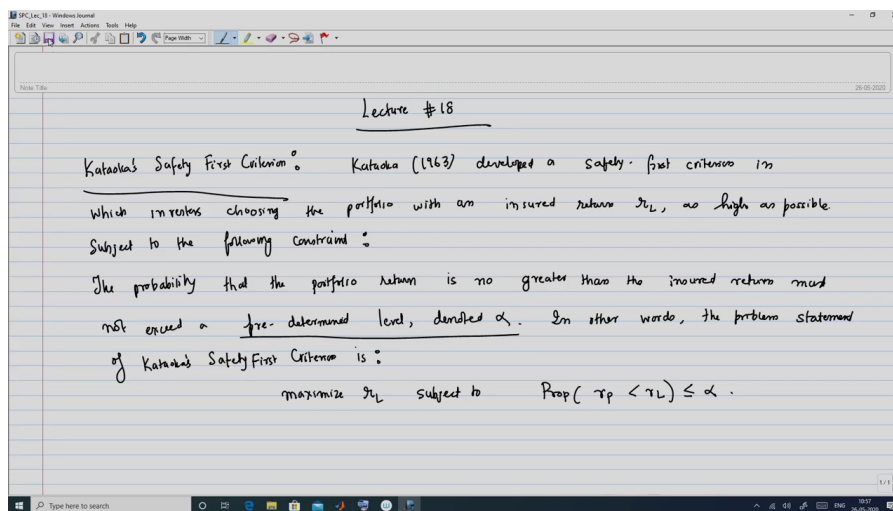 SPC_Lec_18 - Windows Journal
File Edit View Insert Actions Tools Help
Page Width
Note Title
26-05-2020
Lecture #18
Kataoka's Safety First Criterion: Kataoka (1963) developed a safety-first criterion in
which investors choosing the portfolio with an insured return rL, as high as possible.
Subject to the following constraint:
The probability that the portfolio return is no greater than the insured return must
not exceed a pre-determined level, denoted α. In other words, the problem statement
of Kataoka's Safety First Criterion is:
maximize rL subject to Prop( rp < rL) ≤ α.
1/1
Type here to search
ENG
10:57
26-05-2020